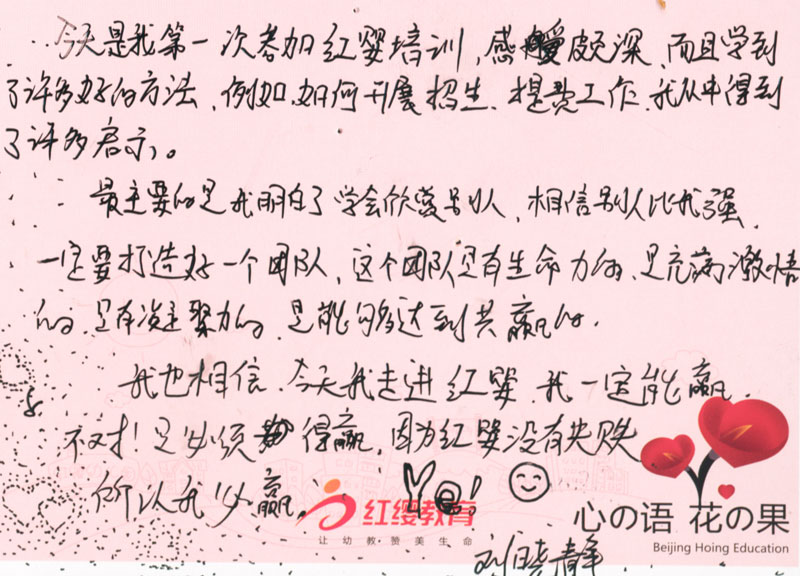 今天是我第一次参加红婴培训，感受颇深，而且学到
了许多好的方法，例如，如何开展招生、提费工作，我从中得到
了许多启示。
最主要的是我明白了学会欣赏别人，相信别人比我强，
一定要打造好一个团队，这个团队是有生命力的，是充满激情
的，是有凝聚力的，是能够达到共赢的。
我也相信，今天我走进红婴，我一定能赢，
不对！是必须得赢，因为红婴没有失败
所以我必赢。Ye!
红缨教育
让幼教·赞美生命
心の语 花の果
Beijing Hoing Education
刘晓青